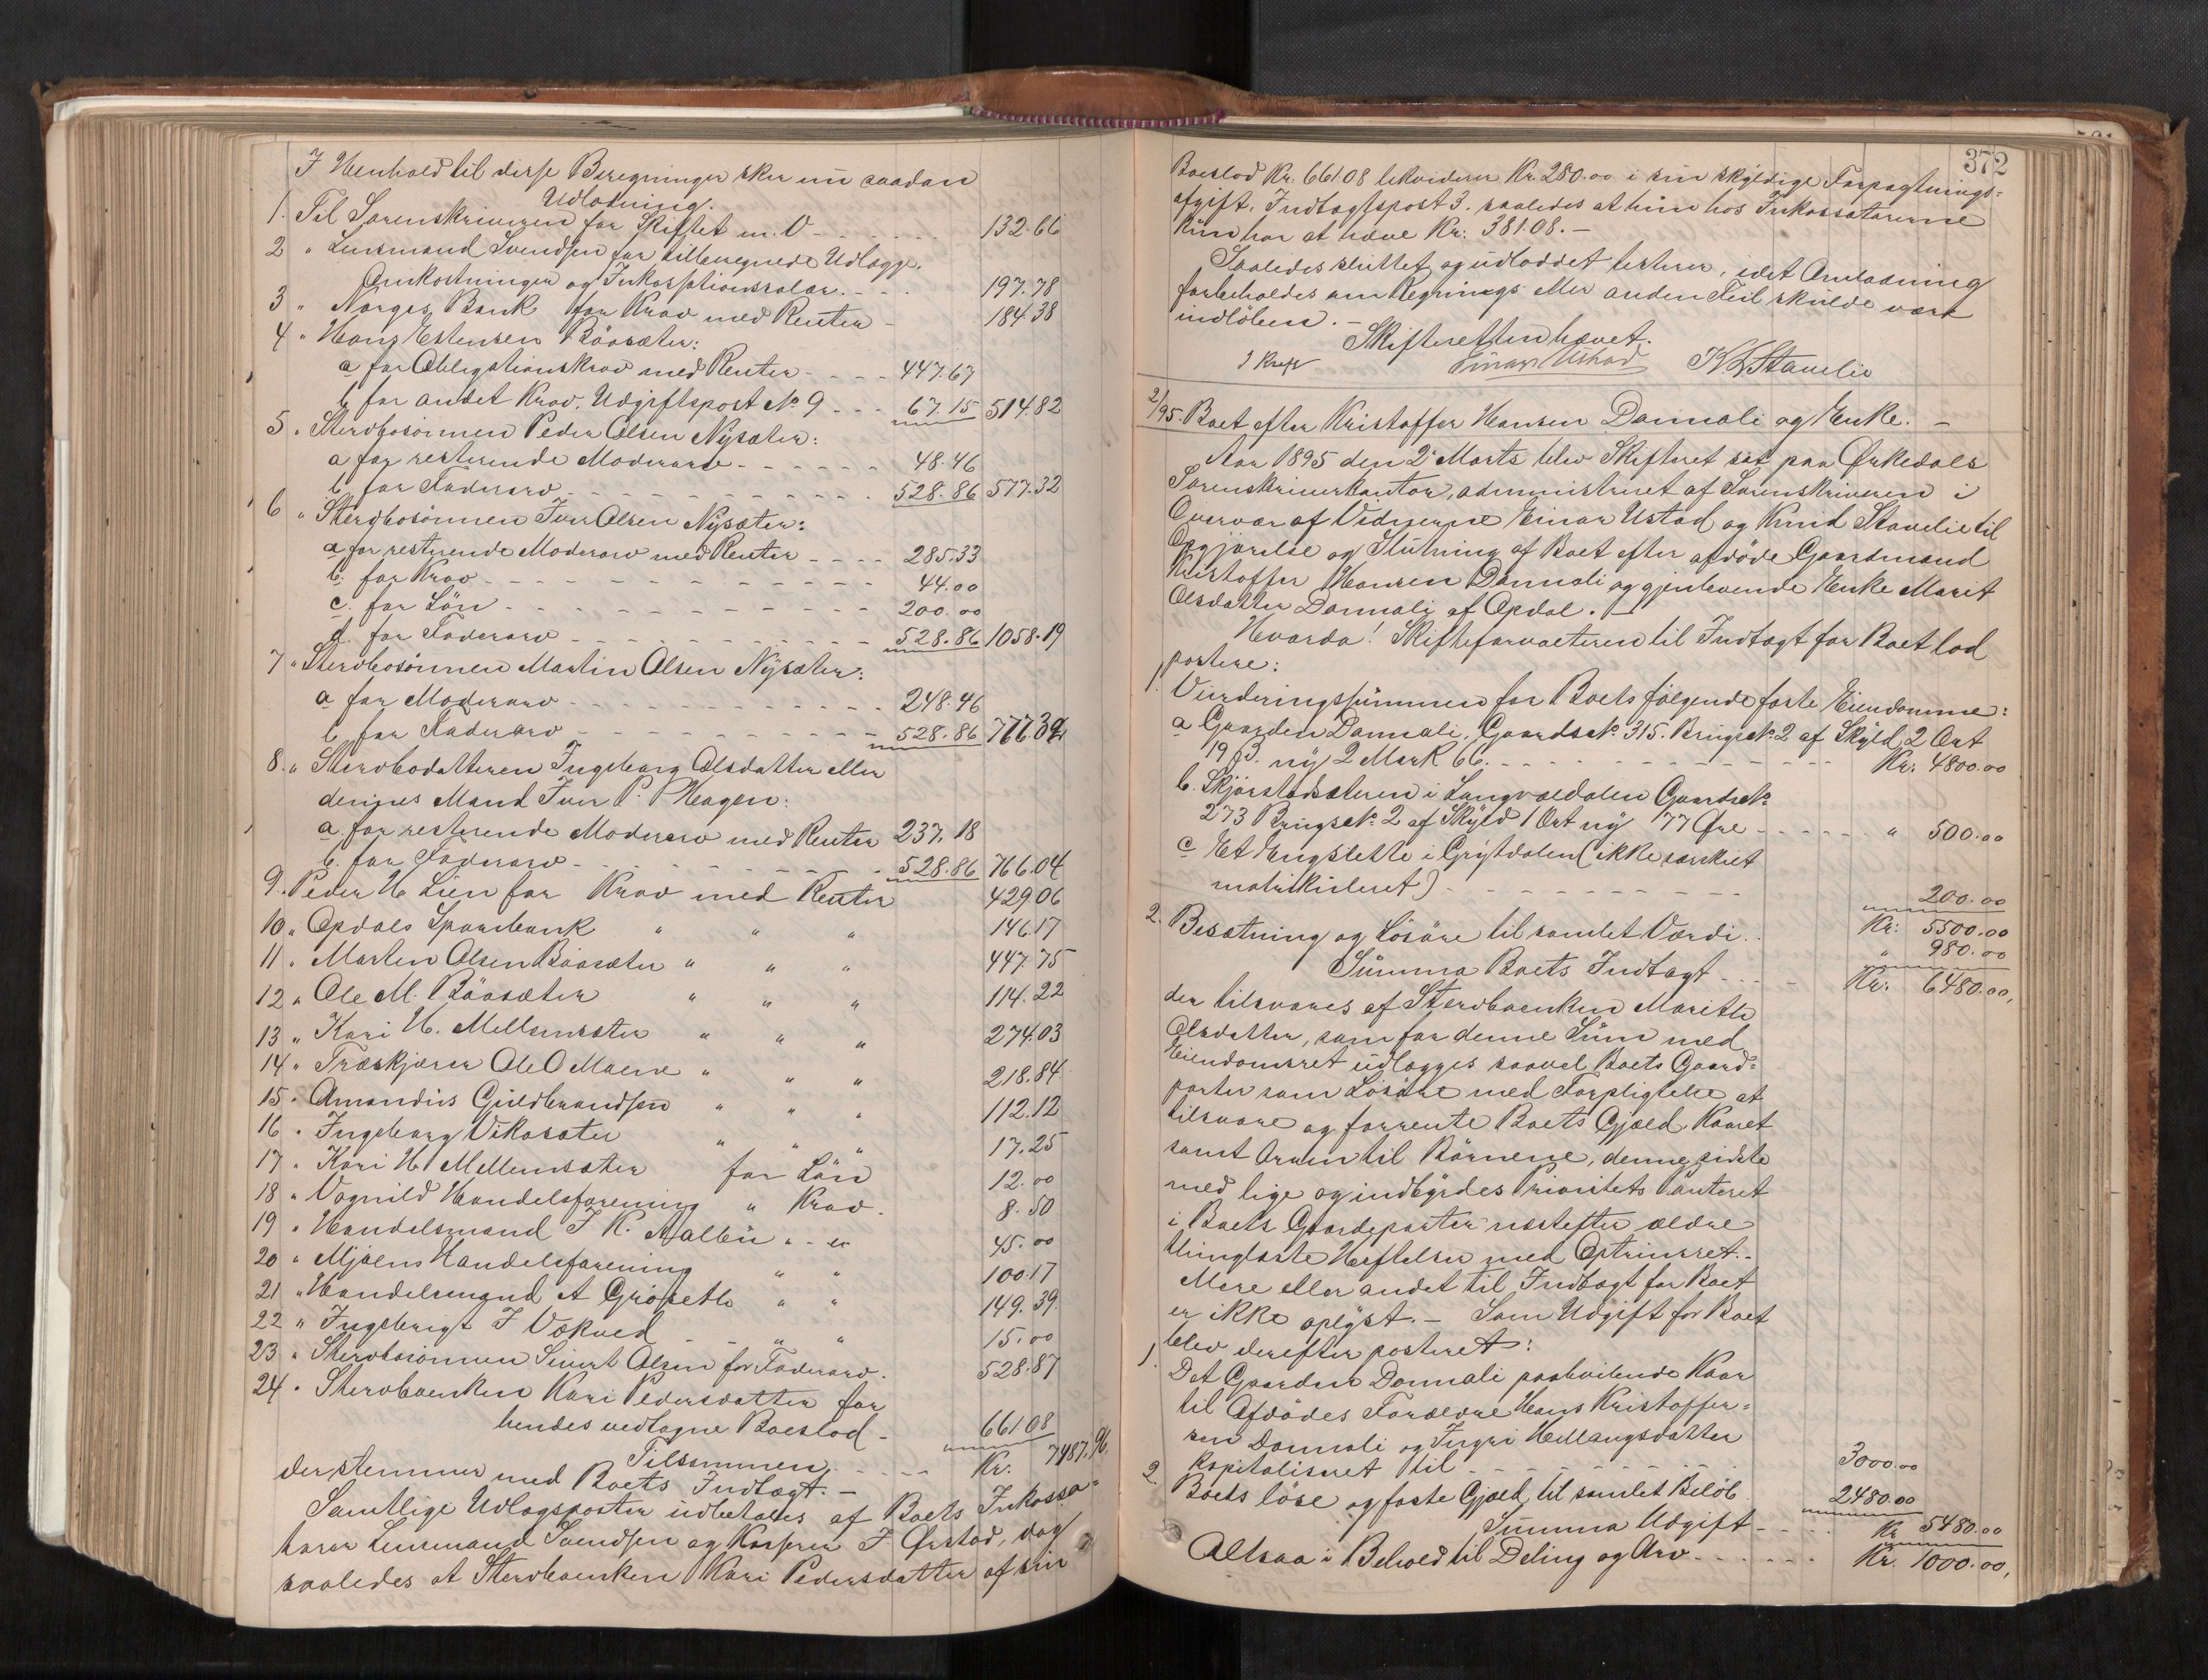 I Henhold til disse Beregninger sker nu saadan
Udlodning.
1. Til Sorenskriveren for Skiftet m. V - - - 132.66
2 " Lensmand Svendsen for tilberegnede Udlægge,
Omkostninger og Inkassationssalær. - - - 197.78
3 " Norges Bank for Krav med Renter - 184.38
4 " Hans Estensen Bøasæter:
a for Obligationskrav med Renter - - - - 447.67
b for andet Krav, Udgiftspost No 9 - - - 67.15 514.82
5 " Stervbosønnen Peder Olsen Nysæter:
a for resterende Moderarv - - - - - - 48.46
b for Faderarv - - - - - - - - 528.86 577.32
6 " Stervbosønnen Iver Olsen Nysæter:
a for resterende Moderarv med Renter - - - - 285.33
b. for Krav - - - - - - - - - - 44.00
c. for Løn - - - - - - - - - - 200.00
d. for Faderarv - - - - - - - - 528.86 1058.19
7 " Stervbosønnen Martin Olsen Nysæter:
a for Moderarv - - - - - - - - 248.46
b for Faderarv - - - - - - - - 528.86 777.32
8 " Stervbodatteren Ingeborg Olsdatter eller
dennes Mand Iver P. Hagen:
a. for resterende Moderarv med Renter 237.18
b. for Faderarv - - - - - - - 528.86 766.04
9. " Peder H Lien for Krav med Renter 429.06
10 " Opdals Sparebank " " " 146.17
11 " Morten Olsen Bøasæter " " " 447.75
12 " Ole M. Bøasæter " " " 114.22
13 " Kari H. Mellemsæter " " " 274.03
14 " Træskjærer Ole O Moene " " " 218.84
15 " Amandus Guldbrandsen " " " 112.12
16 " Ingeborg Vikasæter " " " 17.25
17 " Kari H Mellemsæter for Løn 12.00
18 " Vognild Handelsforening " Krav. 8.50
19 " Handelsmand I K. Aalbu " - " 45.00
20 " Mjoens Handelsforening " " 100.17
21 " Handelsmand A Grøseth " " 149.39
22 " Ingebrigt I Vekved - - " " 15.00
23 " Stervbosønnen Sivert Olsen for Faderarv. 528.87
24 " Stervboenken Kari Pedersdatter for
hendes vedtagne Boeslod - 661.08
Tilsammen. - - - - Kr. 7487.96
der stemmer med Boets Indtægt. -
Samtlige Udlægsposter udbetales af Boets Inkassa=
torer Lensmand Svendsen og Kasserer I. Ørstad, dog
saaledes at Stervboenken Kari Pedersdatter af sin
372
Boeslod Kr. 661.08 likviderer Kr. 280.00 i sin skyldige Forpagtnings=
afgift, Indtægtspost 3. saaledes at hun hos Inkassatorerne
kun har at hæve Kr: 381.08. -
Saaledes sluttet og udloddet testerer, idet Omlodning
forbeholdes om Regnings- eller anden Feil skulde være
indløben. -
Skifteretten hævet.
Einar Ustad K. L. Stavelie
2/95. Boet efter Kristoffer Hansen Donnali og Enke. -
Aar 1895 den 2 Marts blev Skifteret sat paa Ørkedals
Sorenskriverkontor, administreret af Sorenskriveren i
Overvær af Vidnerne Einar Ustad og Knud Stavelie til
Opgjørelse og Slutning af Boet efter afdøde Gaardmand
Kristoffer Hansen Donnali og gjenlevende Enke Marit
Olsdatter Donnali af Opdal. -
Hvorda! Skifteforvalteren til Indtægt for Boet lod
postere:
1. Vurderingssummen for Boets følgende faste Eiendomme:
a Gaarden Donnali, Gaards No. 315. Brugs No. 2 af Skyld 2 Ort
19 ß. ny 2 Mark 66. - - - - - - - - Kr. 4800.00
b. Skjørstadsæteren i Langvaldalen Gaards No.
273 Brugs No. 2 af Skyld 1 Ort ny 77 Øre - - - - - " 500.00
c Et Engslette i Grytdalen (ikke særskilt
matrikuleret) - - - - - - - - - - 200.00
Kr: 5500.00
2. Besætning og Løsøre til samlet Værdi. . " 980.00
Summa Boets Indtægt - - - - Kr. 6480.00,
der tilsvares af Stervboenken Marith
Olsdatter, som for denne Sum med
Eiendomsret udlægges saavel Boets Gaard=
parter som Løsøre med Forpligtelse at
tilsvare og forrente Boets Gjæld, Kaaret
samt Arven til Børnene, denne sidste
med lige og indbyrdes Prioritets Panteret
i Boets Gaardeparter næstefter ældre
thinglæste Heftelser med Optrinsret. -
Mere eller andet til Indtægt for Boet
er ikke oplyst. - Som Udgift for Boet
blev derefter posteret:
1. Det Gaarden Donnali paahvilende Kaar
til Afdødes Forældre Hans Kristoffer=
sen Donnali og Ingri Hellaugsdatter
kapitaliseret til - - - - - - - 3000.00
2. Boets løse og faste Gjæld til samlet Beløb 2480.00
Summa Udgift - - - - Kr 5480.00
Altsaa i Behold til Deling og Arv - - - - - - Kr. 1000.00,